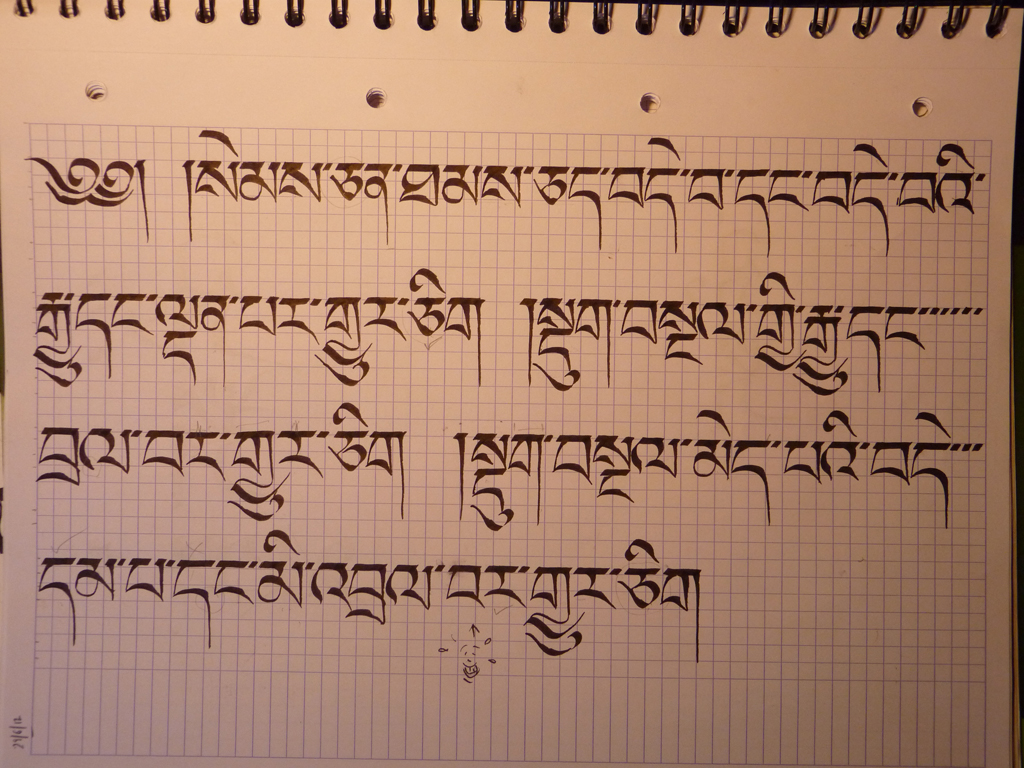 ༄༅། །སེམས་ཅན་ཐམས་ཅད་བདེ་བ་དང་བདེ་བའི་
རྒྱུ་དང་ལྡན་པར་གྱུར་ཅིག །སྡུག་བསྔལ་གྱི་རྒྱུ་དང་་་་་་
བྲལ་བར་གྱུར་ཅིག །སྡུག་བསྔལ་མེད་པའི་བདེ་་་
དམ་པ་དང་མི་འབྲལ་བར་གྱུར་ཅིག